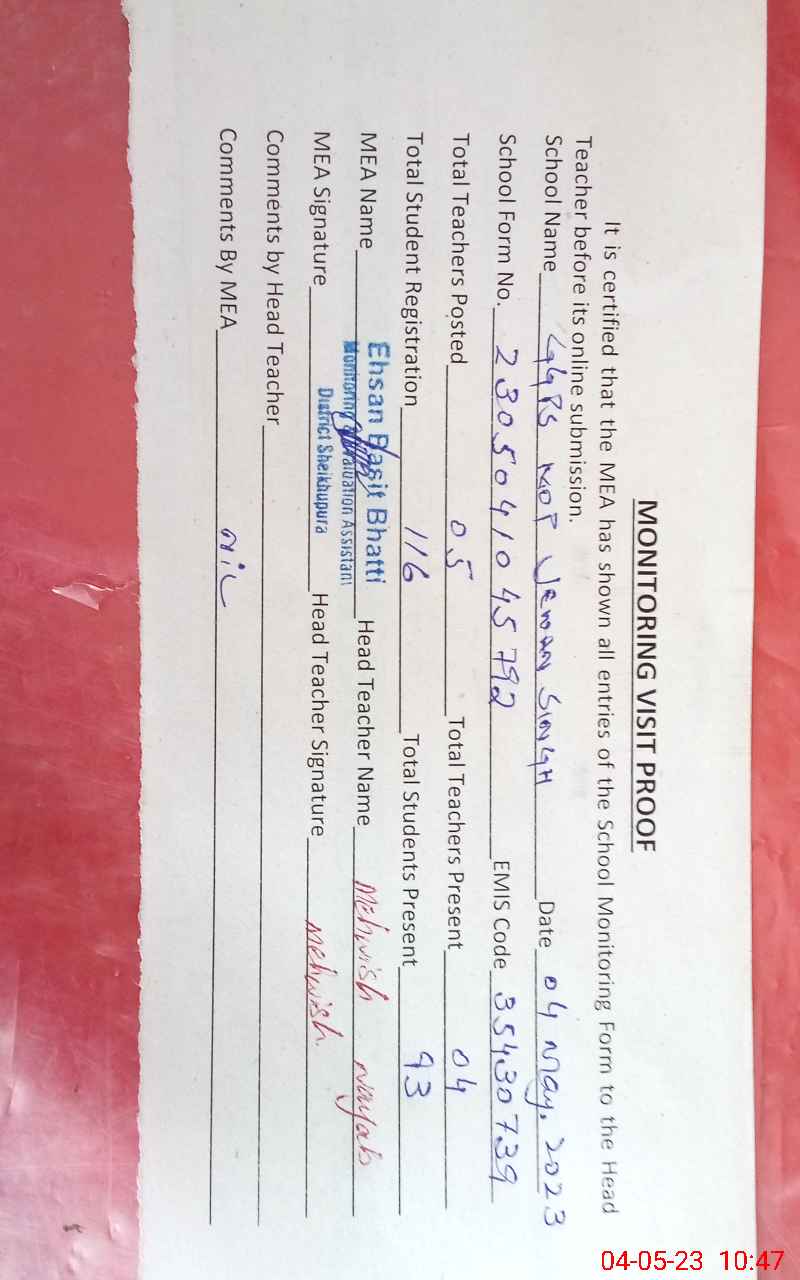 MONITORING VISIT PROOF
It is certified that the MEA has shown all entries of the School Monitoring Form to the Head
Teacher before its online submission.
School Name GGPS MOP JEWAN SINGH Date 04 May, 2023
School Form No. 2305041045792 EMIS Code 35430739
Total Teachers Posted 05 Total Teachers Present 04
Total Student Registration 116 Total Students Present 93
MEA Name Ehsan Basit Bhatti Head Teacher Name Mehwish Nayab
Monitoring Evaluation Assistant
District Sheikhupura
MEA Signature Head Teacher Signature Mehwish
Comments by Head Teacher
Comments By MEA NIL
04-05-23 10:47